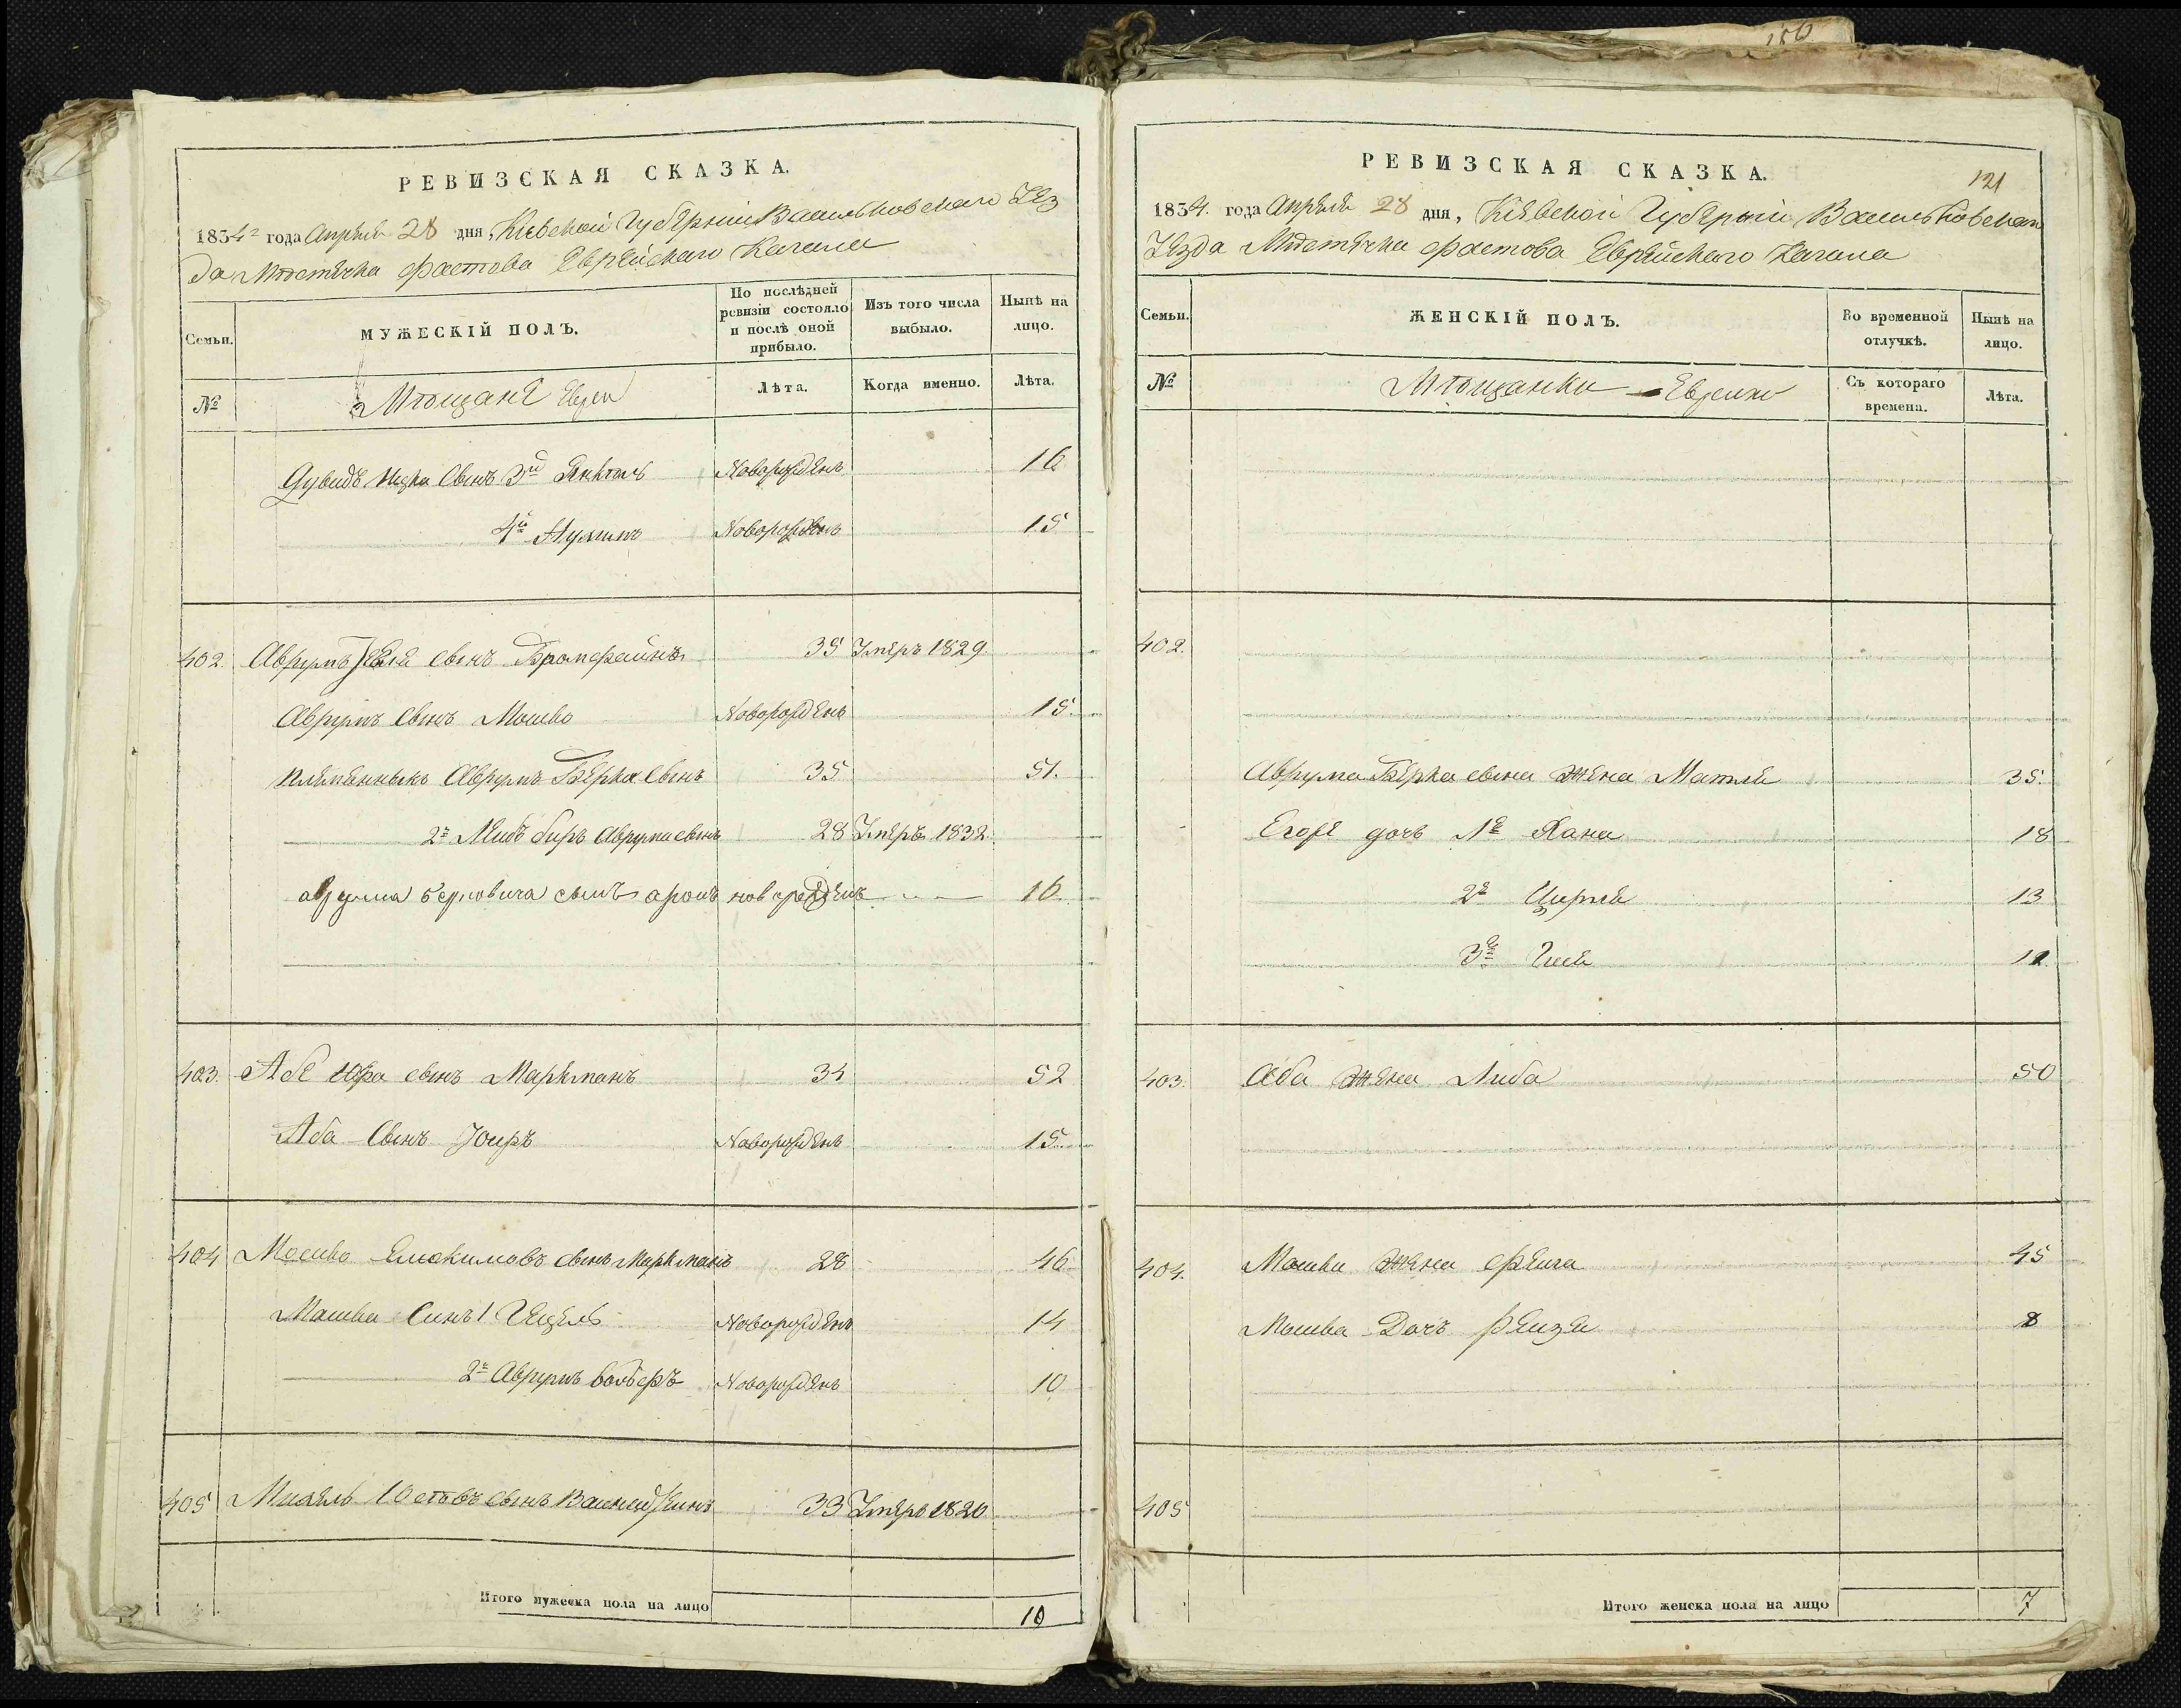 156
РЕВИЗСКАЯ СКАЗКА.
1834го года Апреля 28 дня, Киевской Губернии Васильковского Уез
да Мѣстечка Фастова Еврейского Кагала
Семьи.
МУЖЕСКІЙ ПОЛЪ.
По послѣдней ревизіи состояло и послѣ оной прибыло.
Изъ того числа выбыло.
Нынѣ на лицо.
№
Мѣщане Евреи
Лѣта.
Когда именно.
Лѣта.
Дувидъ Ицка Сынъ 3й Янкель Новорожденъ 16
4й Нухимъ Новорожденъ 15
402. Аврумъ сынъ 35 Умеръ 1829.
Аврумъ Сынъ Мошко Новорожденъ 15.
племянныкъ Аврумъ Берка Сынъ 35 51.
2й Лейбъ беръ Аврума сынъ 28 Умеръ 1832.
аврума берковича сынъ аронъ новорожденъ 16.
403. Абе сынъ Маркманъ 34 52
Аба Сынъ Юсиръ Новорожденъ 15.
404 Мошко сынъ Маркманъ 28 46
Мошка Синъ 1 Гецель Новорожденъ 14
2й Аврумъ волберъ Новорожденъ 10
405 Михель сынъ 33 Умеръ 1820
Итого мужеска пола на лицо 10
РЕВИЗСКАЯ СКАЗКА.
121
1834. года Апреля 28 дня, Киевской Губерыи Васильковскаго
Уезда Мѣстечка Фастова Еврейского Кагала
Семьи.
ЖЕНСКІЙ ПОЛЪ.
Во временной отлучкѣ.
Нынѣ на лицо.
№
Мѣщанки Еврейки
Съ котораго времена.
Лѣта.
402.
Аврума Берка сына Жена Матля 35.
Егоре дочь 1е Хана 18
2е Цирля 13
3е 11
403. Аба Жена Либа 50
404. Мошка Жена Фейга 45
Мошка Дочъ Рейзя 8
405
Итого женска пола на лицо 7